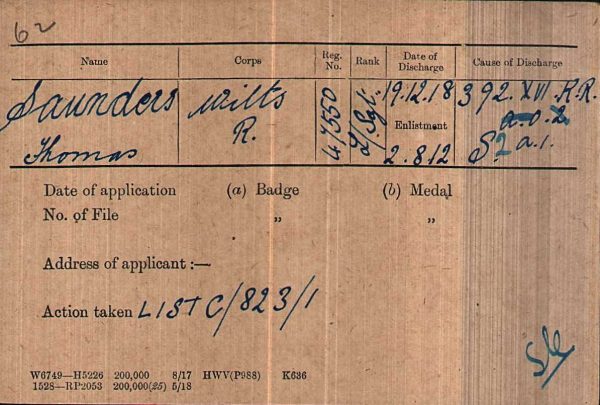 62
Name Corps Reg. No. Rank Date of Discharge Cause of Discharge
Saunders Wilts 47550 L/Sgt. 19.12.18 392. XVI. R.R.
R. Enlistment a.o.2
Thomas 2.8.12 S. 2 a.i.
Date of application (a) Badge (b) Medal
No. of File „ „
Address of applicant :—
Action taken LIST C/823/1
W6749—H5226 200,000 8/17 HWV(P988) K636
1528—RP2053 200,000(25) 5/18